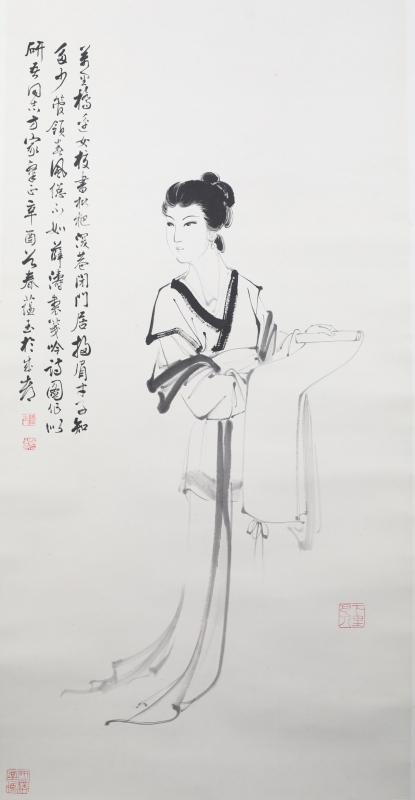 萬里橋边女校書枇杷深巷閉門居掃眉才子知
多少管領春風總不如薛濤製箋吟詩圖作似
研吾同志方家察正辛酉之春蘊玉於成都